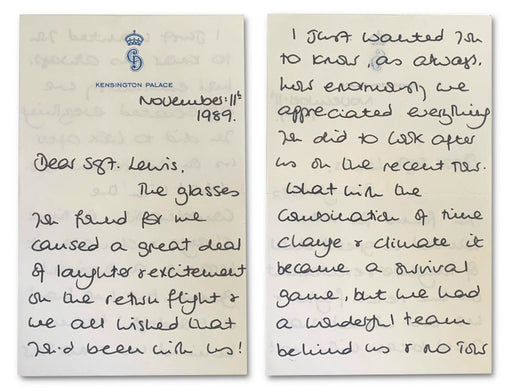 KENSINGTON PALACE
November: 11th
1989.
Dear Sgt. Lewis,
The glasses
you found for me
caused a great deal
of laughter & excitement
on the return flight &
we all wished that
you'd been with us!
I just wanted you
to know, as always,
how enormously we
appreciated everything
you did to look after
us on the recent tour.
What with the
combination of time
change & climate it
became a survival
game, but we had
a wonderful team
behind us & no tour